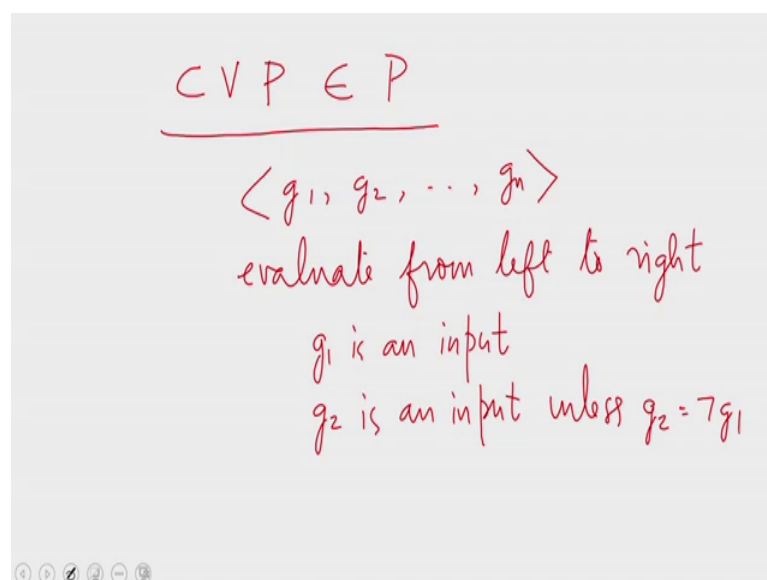 CVP ∈ P
<g₁, g₂, ..., gₙ>
evaluate from left to right
g₁ is an input
g₂ is an input unless g₂ = ¬g₁